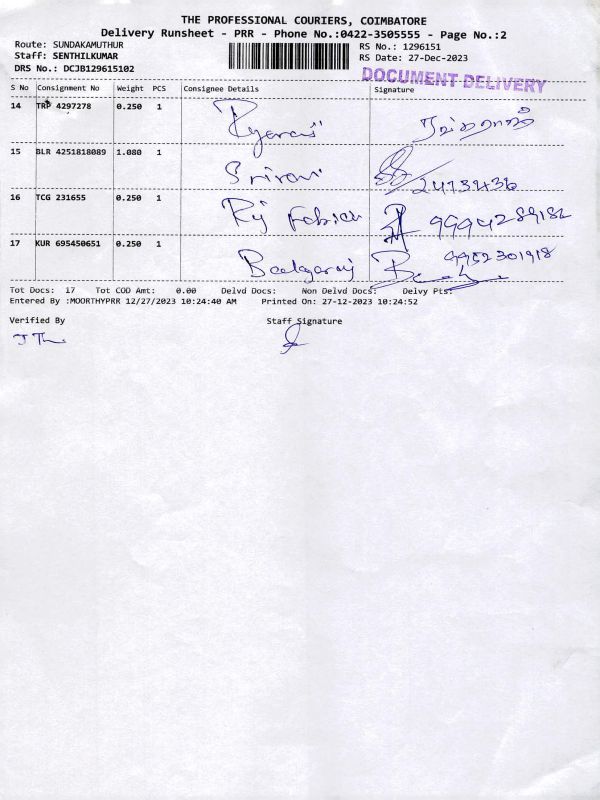 THE PROFESSIONAL COURIERS, COIMBATORE
Delivery Runsheet - PRR - Phone No.:0422-3505555 - Page No.:2
Route: SUNDAKAMUTHUR
RS No.: 1296151
Staff: SENTHILKUMAR
RS Date: 27-Dec-2023
DRS No.: DCJB129615102
DOCUMENT DELIVERY
S No Consignment No Weight PCS Consignee Details Signature
14 TRP 4297278 0.250 1
15 BLR 4251818089 1.080 1 24732436
16 TCG 231655 0.250 1 9994289182
17 KUR 695450651 0.250 1 9952301918
Tot Docs: 17 Tot COD Amt: 0.00 Delvd Docs: Non Delvd Docs: Delvy Pts:
Entered By :MOORTHYPRR 12/27/2023 10:24:40 AM Printed On: 27-12-2023 10:24:52
Verified By Staff Signature